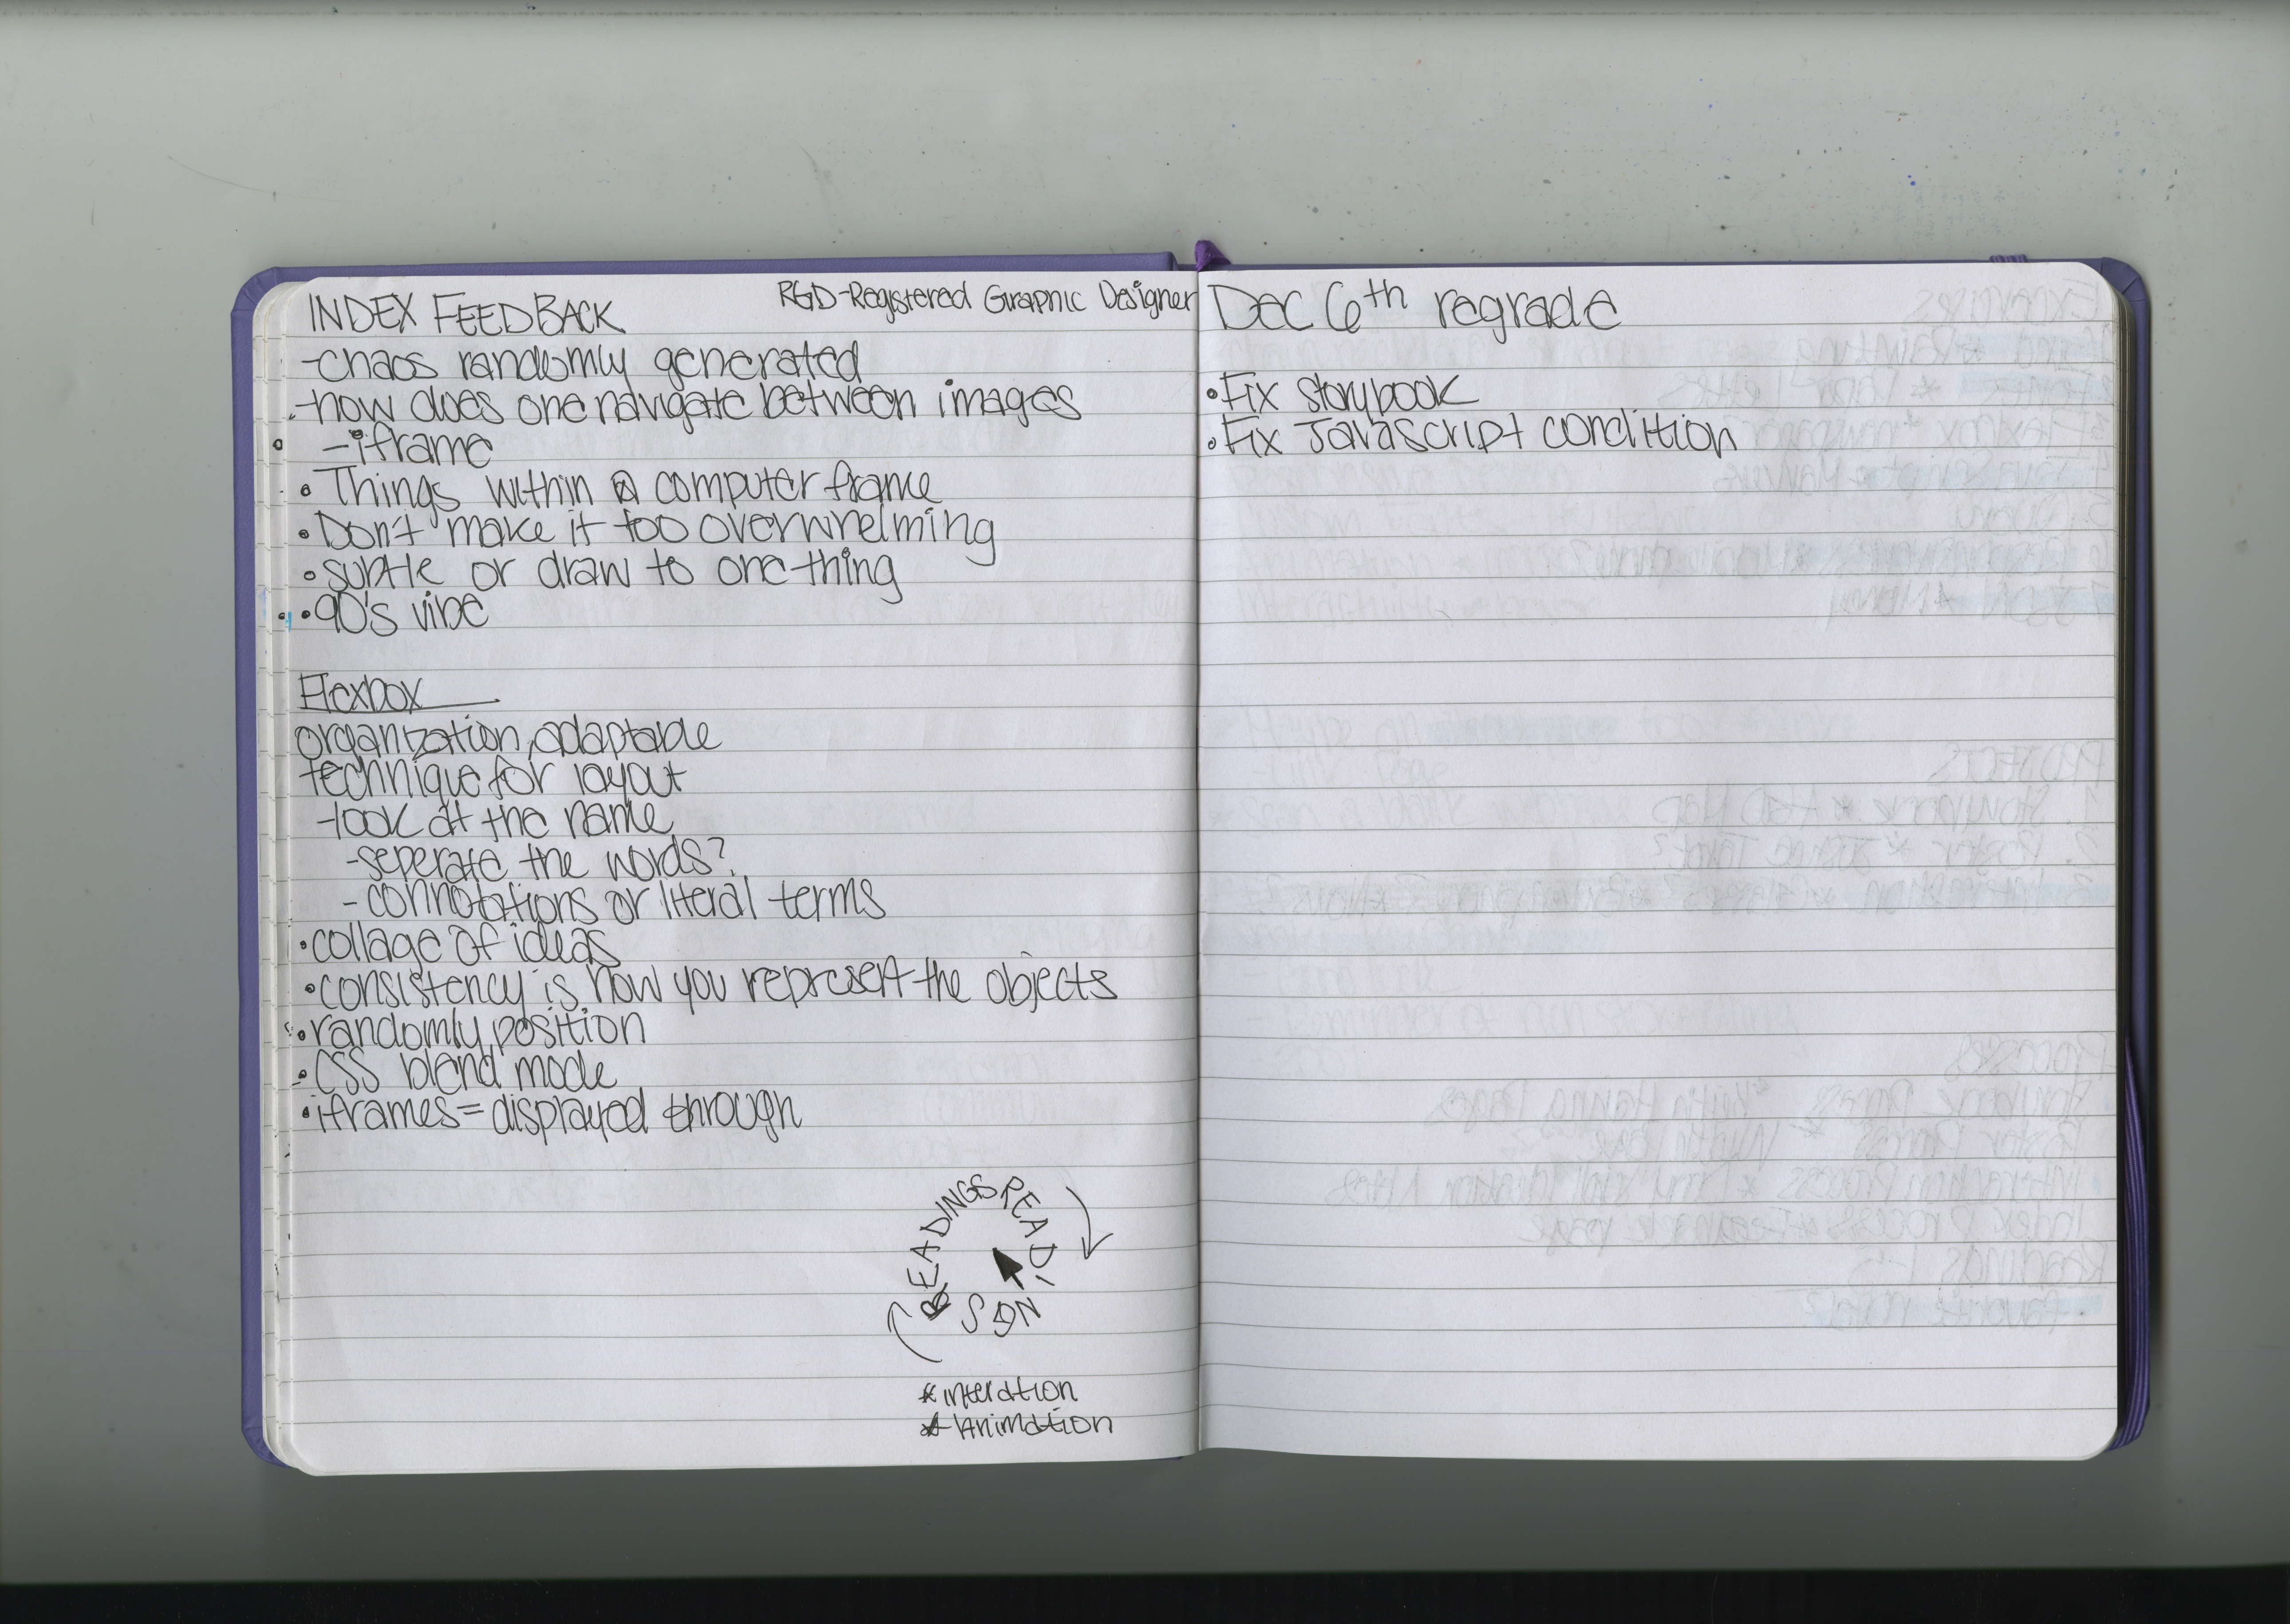 INDEX FEEDBACK
RGD-Registered Graphic Designer
-chaos randomly generated
-how does one navigate between images
-iframe
• Things within a computer frame
• Don't make it too overwhelming
• subtle or draw to one thing
• 90's vibe
Flexbox
organization, adaptable
technique for layout
-look at the name
-seperate the words?
- connotations or literal terms
• collage of ideas
• consistency is how you represent the objects
• randomly position
• CSS blend mode
• iframes = displayed through
READINGS READINGS
* interation
* Animation
Dec 6th regrade
• Fix storybook
• Fix Javascript condition